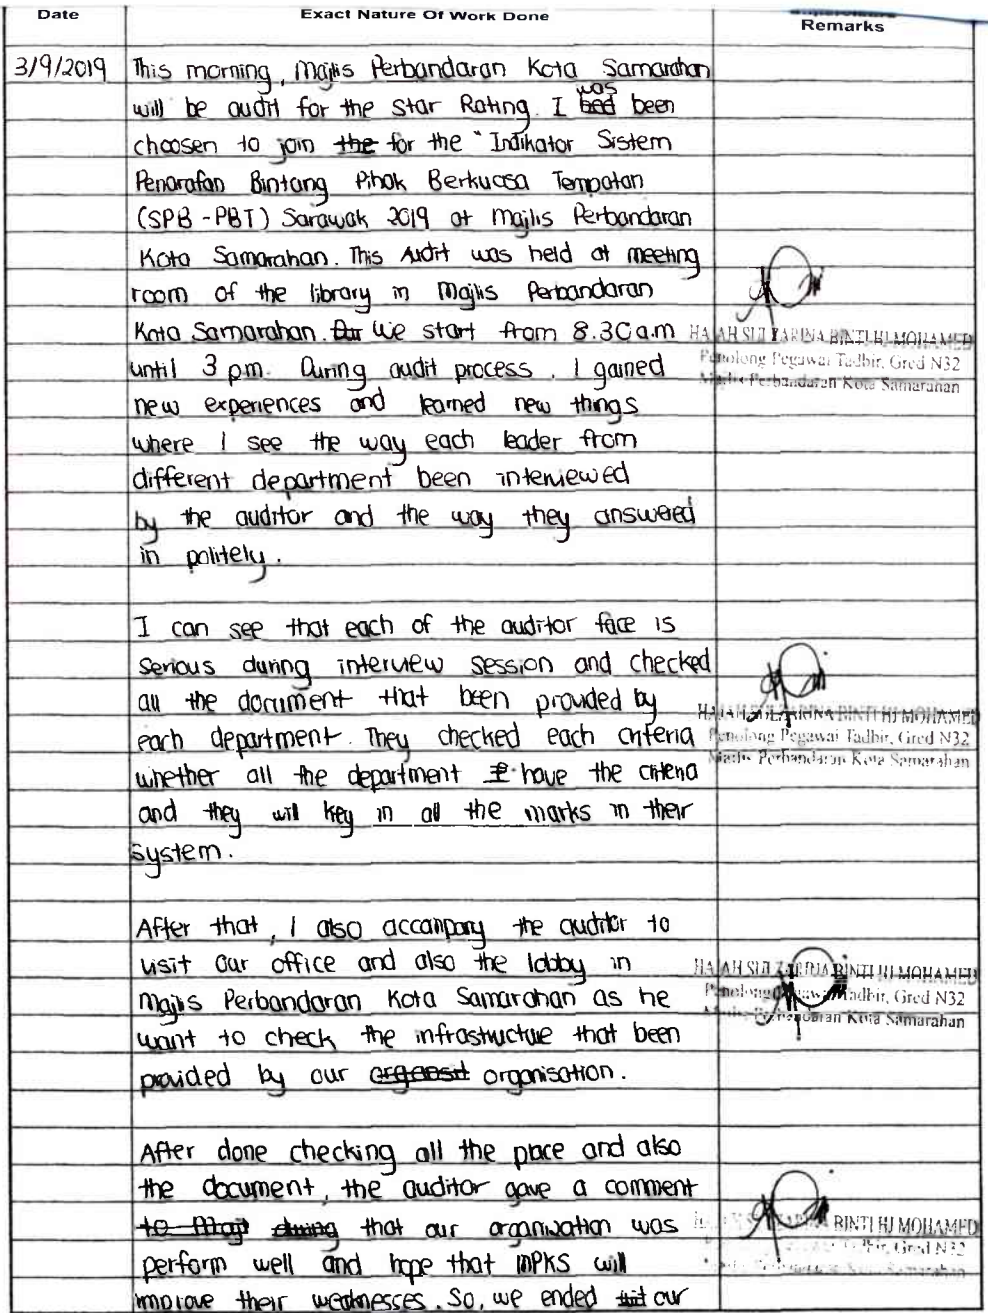 Date Exact Nature Of Work Done Remarks
3/9/2019 This morning, Majlis Perbandaran Kota Samarahan
will be audit for the Star Rating. I had was been
choosen to join the for the "Indikator Sistem
Penarafan Bintang Pihak Berkuasa Tempatan
(SPB-PBT) Sarawak 2019 at Majlis Perbandaran
Kota Samarahan. This Audit was held at meeting
room of the library in Majlis Perbandaran
Kota Samarahan. We start from 8.30 a.m
until 3 pm. During audit process, I gained
new experiences and learned new things
where I see the way each leader from
different department been interviewed
by the auditor and the way they answered
in politely.
BINTI HJ MOHAMED
Penolong Pegawai Tadbir, Gred N32
Majlis Perbandaran Kota Samarahan
I can see that each of the auditor face is
serious during interview session and checked
all the document that been provided by
each department. They checked each criteria
whether all the department have the criteria
and they will key in all the marks in their
system.
BINTI HJ MOHAMED
Penolong Pegawai Tadbir, Gred N32
Majlis Perbandaran Kota Samarahan
After that, I also accampany the auditor to
visit our office and also the lobby in
Majlis Perbandaran Kota Samarahan as he
want to check the infrastructure that been
provided by our organisation.
BINTI HJ MOHAMED
Penolong Pegawai Tadbir, Gred N32
Majlis Perbandaran Kota Samarahan
After done checking all the place and also
the document, the auditor gave a comment
to during that our organization was
perform well and hope that MPKS will
improve their weaknesses. So, we ended our
BINTI HJ MOHAMED
Tadbir, Gred N32
Kota Samarahan